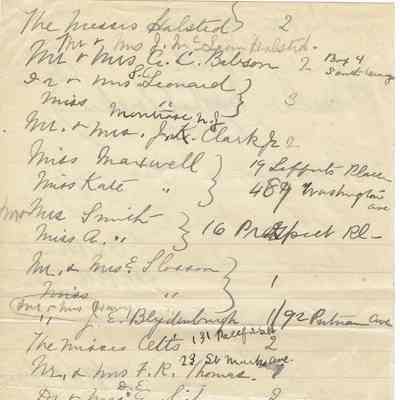 The Misses Halsted } 2
Mr & Mrs J. Mc Halsted.
Mr & Mrs A. C. Bebson 2 Box 4
South Orange
Dr & Mrs Leonard } 3
Miss "
Montrose N.J.
Mr. & Mrs. J. K. Clark Jr 2
Miss Maxwell } 19 Lefferts Place
Miss Kate " 489 Washington
ave
Mrs Smith } 16 Prospect Pl-
Miss A. "
Mr. & Mrs E Slosson } 1
Miss "
Mr & Mrs
" J. E. Blydenburgh 1 192 Putnam Ave
The Misses Celts 131 2
23 St Marks ave.
Mr. & Mrs F. R. Thomas.
D. E.
Dr & Mrs 2